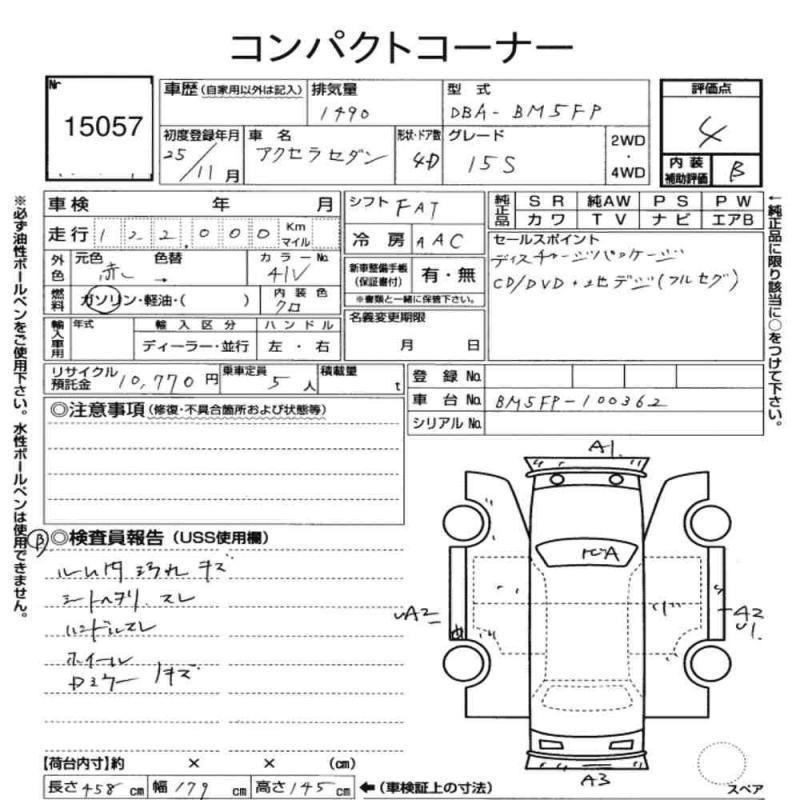 コンパクトコーナー
Nr 15057
車歴 (自家用以外は記入)
排気量 1490
型式 DBA-BM5FP
評価点 4
初度登録年月 25/11月
車名 アクセラセダン
形状・ドア数 4D
グレード 15S
2WD・4WD
内装補助評価 B
車検 年 月
シフト FAT
純正品 SR 純AW PS PW
カワ TV ナビ エアB
走行 122,000 Km マイル
冷房 AAC
セールスポイント
ディスチャージパッケージ
CD/DVD・地デジ(フルセグ)
外色 元色 赤 色替 → カラーNo. 41V
新車整備手帳(保証書付) 有・無
※書類と一緒に保管下さい。
燃料 ガソリン・軽油・( ) 内装色 クロ
名義変更期限 月 日
輸入車用 年式 輸入区分 ハンドル
ディーラー・並行 左・右
リサイクル預託金 10,770円 乗車定員 5人 積載量 t
登録No.
車台No. BM5FP-100362
シリアルNo.
◎注意事項 (修復・不具合箇所および状態等)
B ◎検査員報告 (USS使用欄)
ルーム内 汚れ キズ
シートヘタリ.スレ
ハンドルスレ
ホイール
キズ
A1
A
A2
A2
U1
A3
スペア
【荷台内寸】約 × × (cm)
長さ458cm 幅179cm 高さ145cm ←(車検証上の寸法)
※必ず油性ボールペンをご使用下さい。水性ボールペンは使用できません。
←純正品に限り該当に○をつけて下さい。